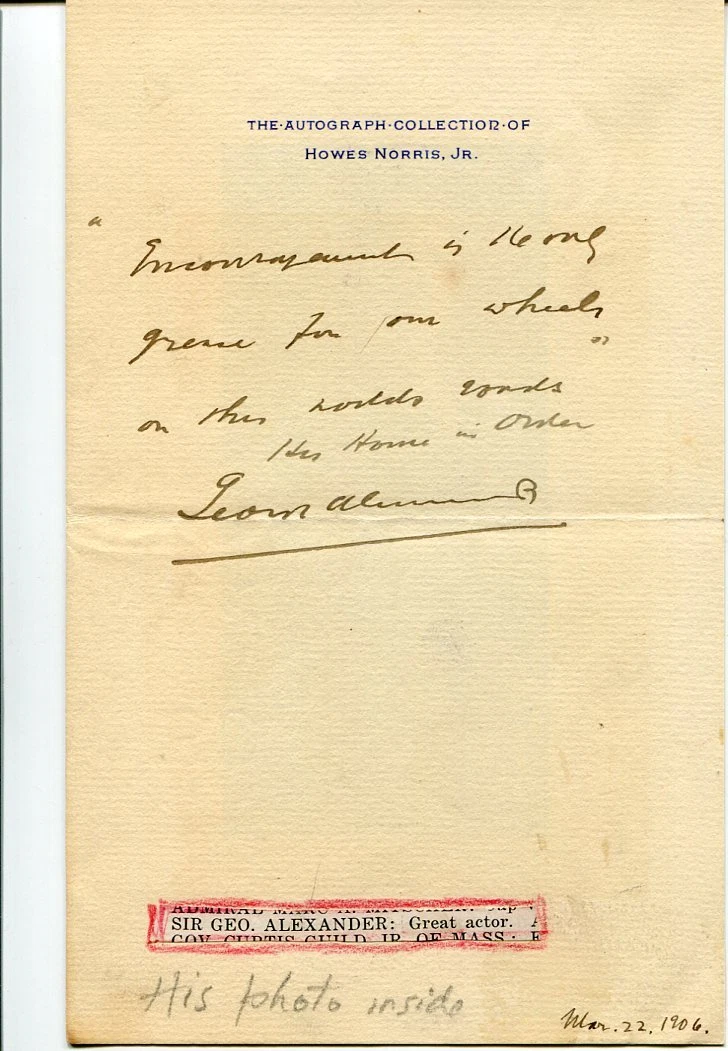 THE·AUTOGRAPH·COLLECTION·OF
HOWES NORRIS, JR.
"Encouragement is the only
grease for our wheels
on this worlds roads"
His House in Order
George Alexander
SIR GEO. ALEXANDER: Great actor.
GOV. CURTIS GUILD JR. OF MASS:
His photo inside
Mar. 22, 1906.